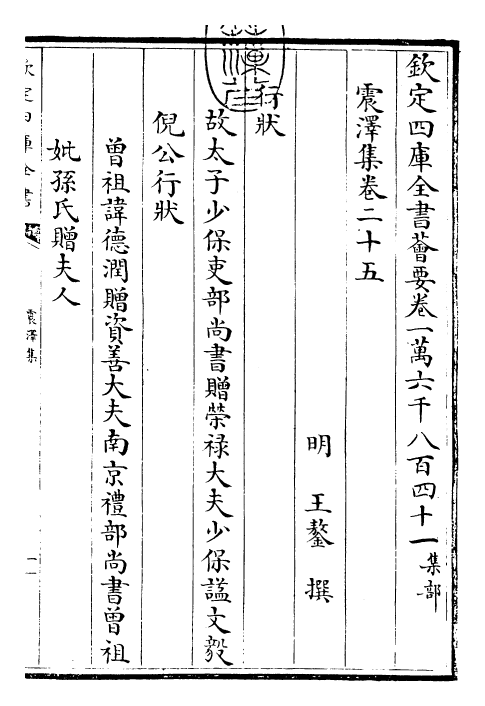 欽定四庫全書薈要卷一萬六千八百四十一集部
震澤集卷二十五
明 王鏊 撰
行狀
故太子少保吏部尚書贈榮祿大夫少保諡文毅
倪公行狀
曾祖諱德潤贈資善大夫南京禮部尚書曾祖
妣孫氏贈夫人
欽定四庫全書
震澤集
一